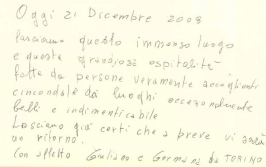 Oggi 21 Dicembre 2008
lasciamo questo immenso luogo
e questa grandiosa ospitalità
fatta da persone veramente accoglienti
circondate da luoghi eccezionalmente
belli e indimenticabile
Lasciamo già certi che a breve vi sarà
un ritorno.
Con affetto Giuliano e Germana da TORINO